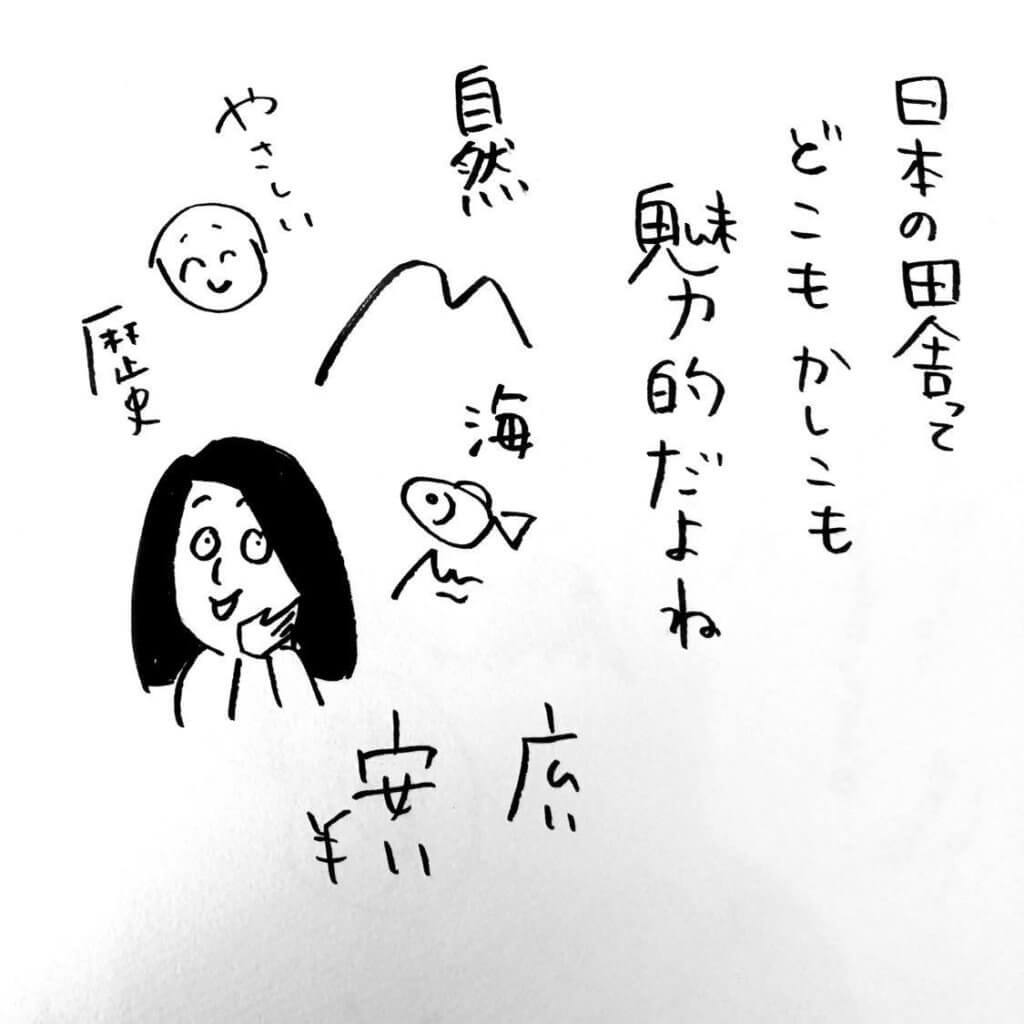 日本の田舎って
どこもかしこも
魅力的だよね
自然
やさしい
歴史
海
広い
安い
¥